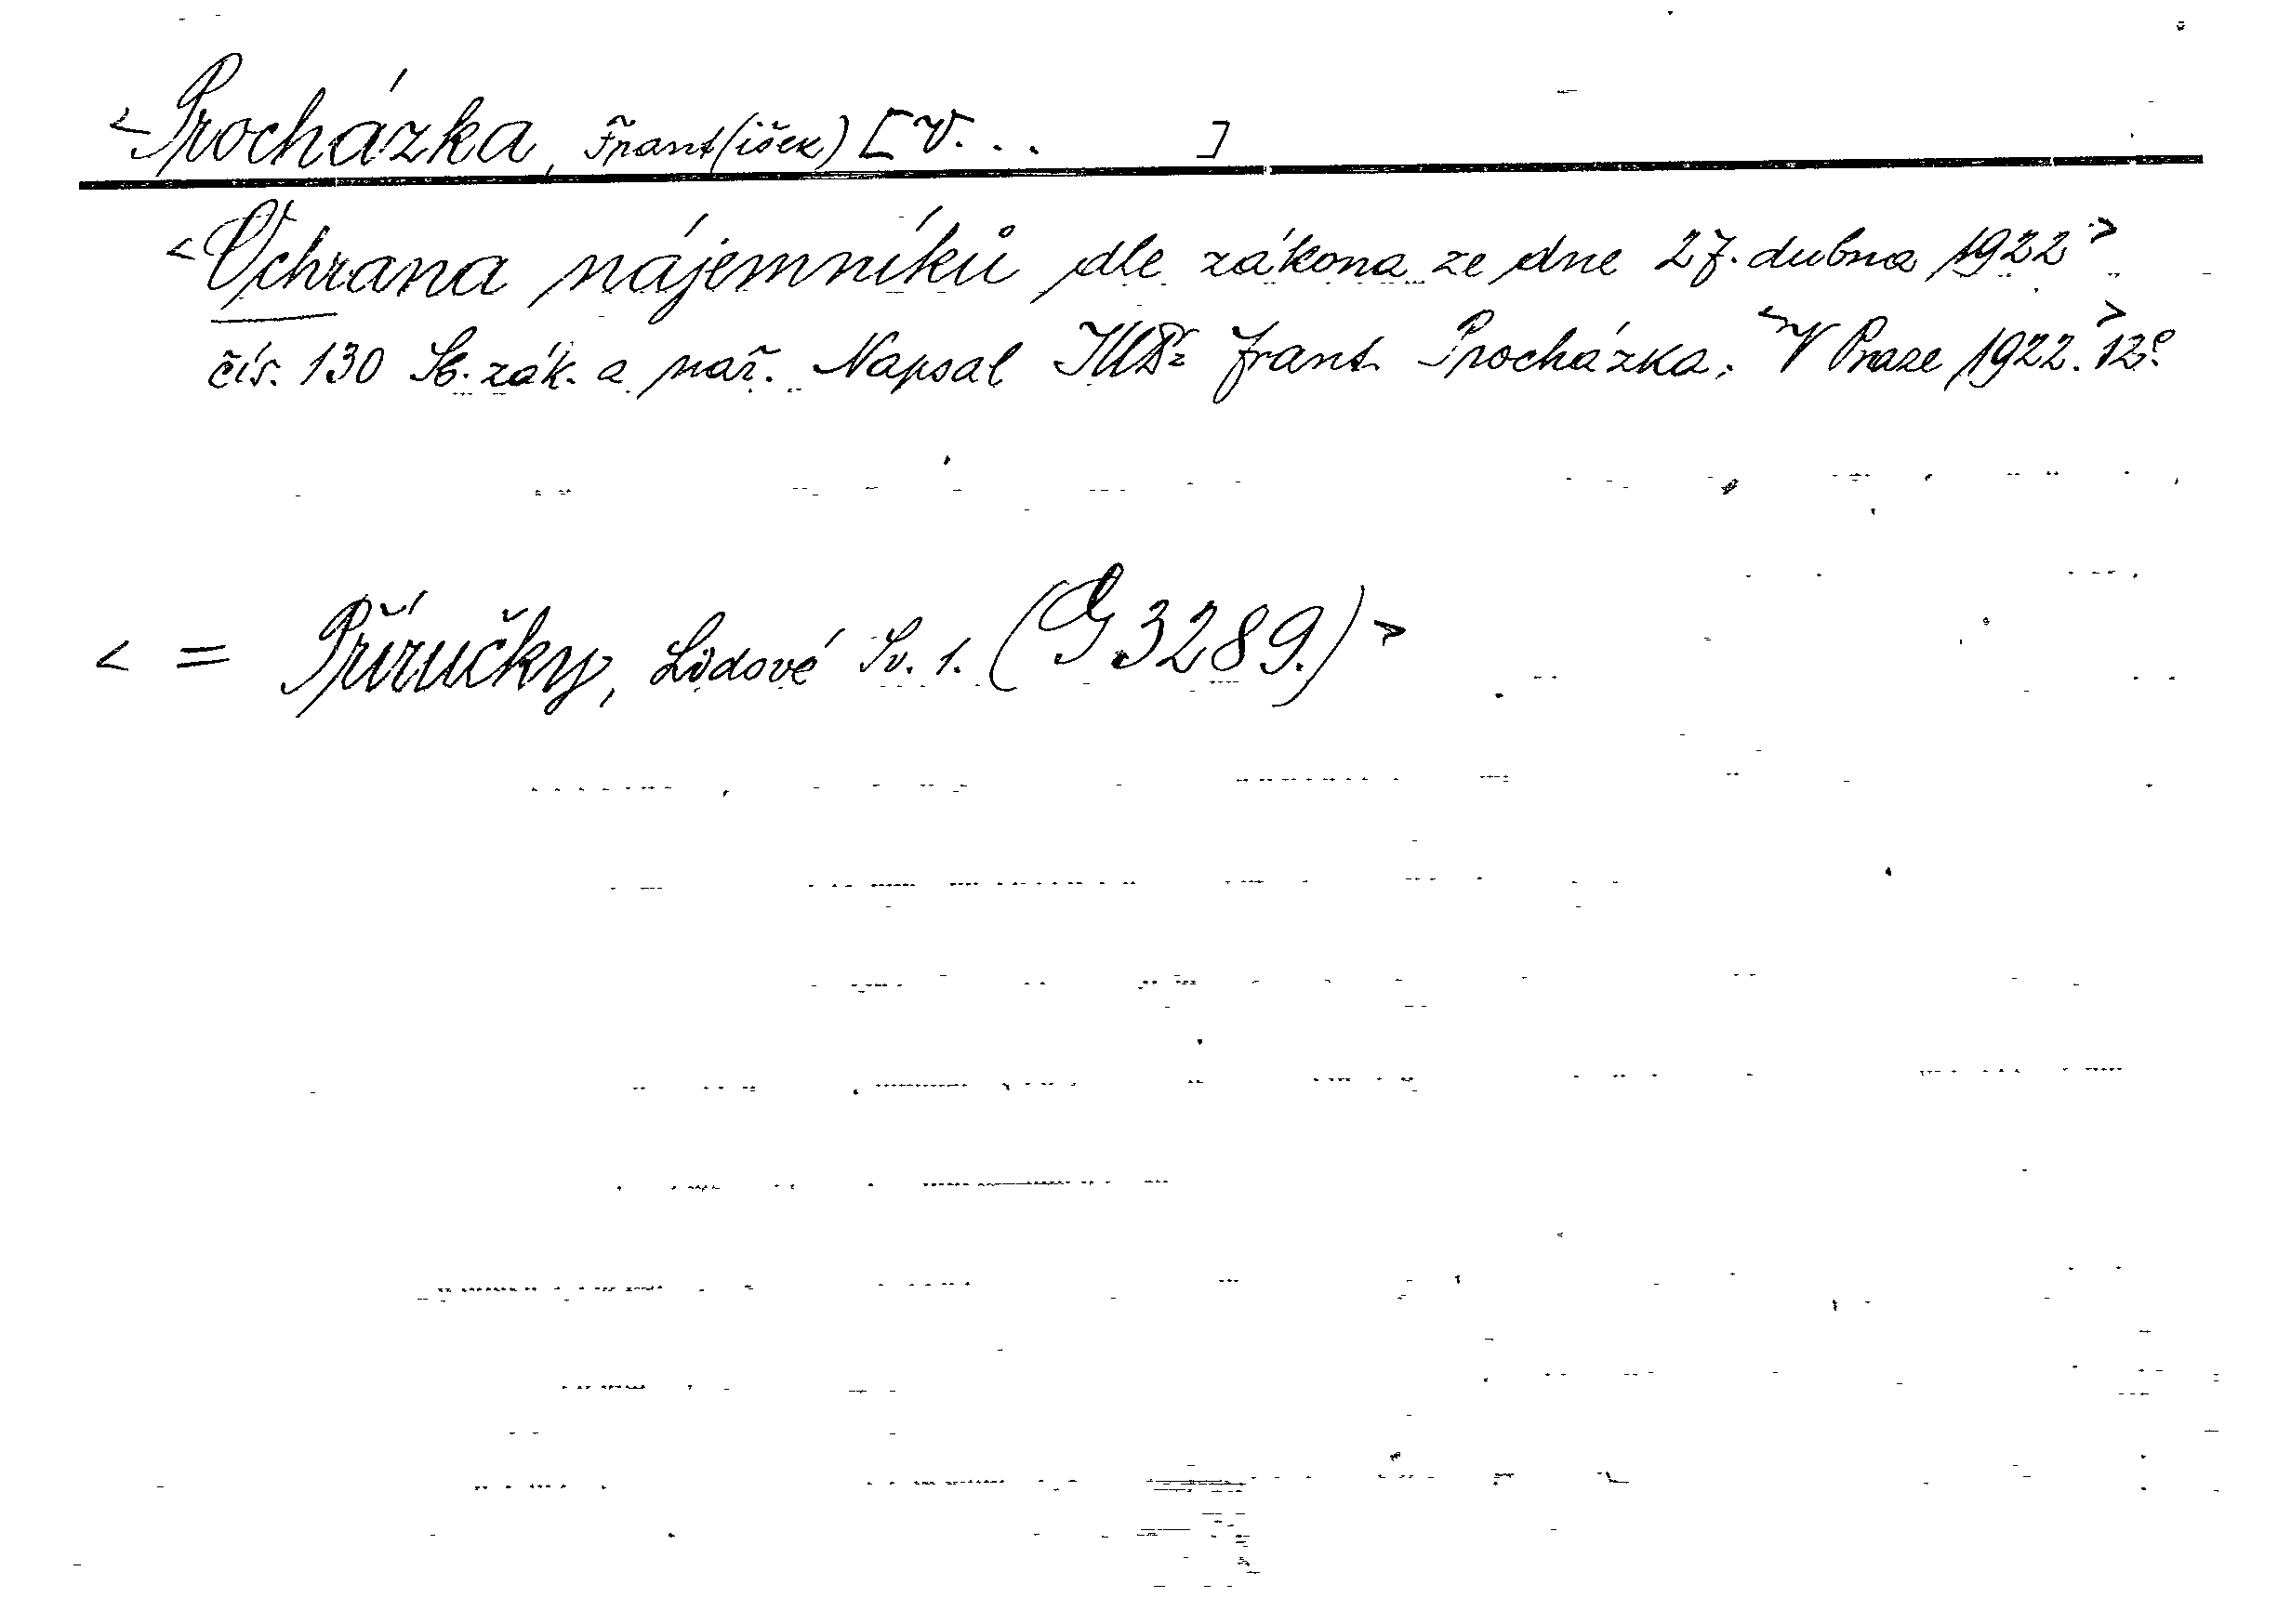 <Procházka, Frant(išek) [V... ]
<Ochrana nájemníků dle zákona ze dne 27. dubna 1922>
čís. 130 Sb. zák. a nař. Napsal JUDr Frant. Procházka. <V Praze 1922.> 12°.
< = Příručky, Lidové Sv. 1. (G 3289.) >